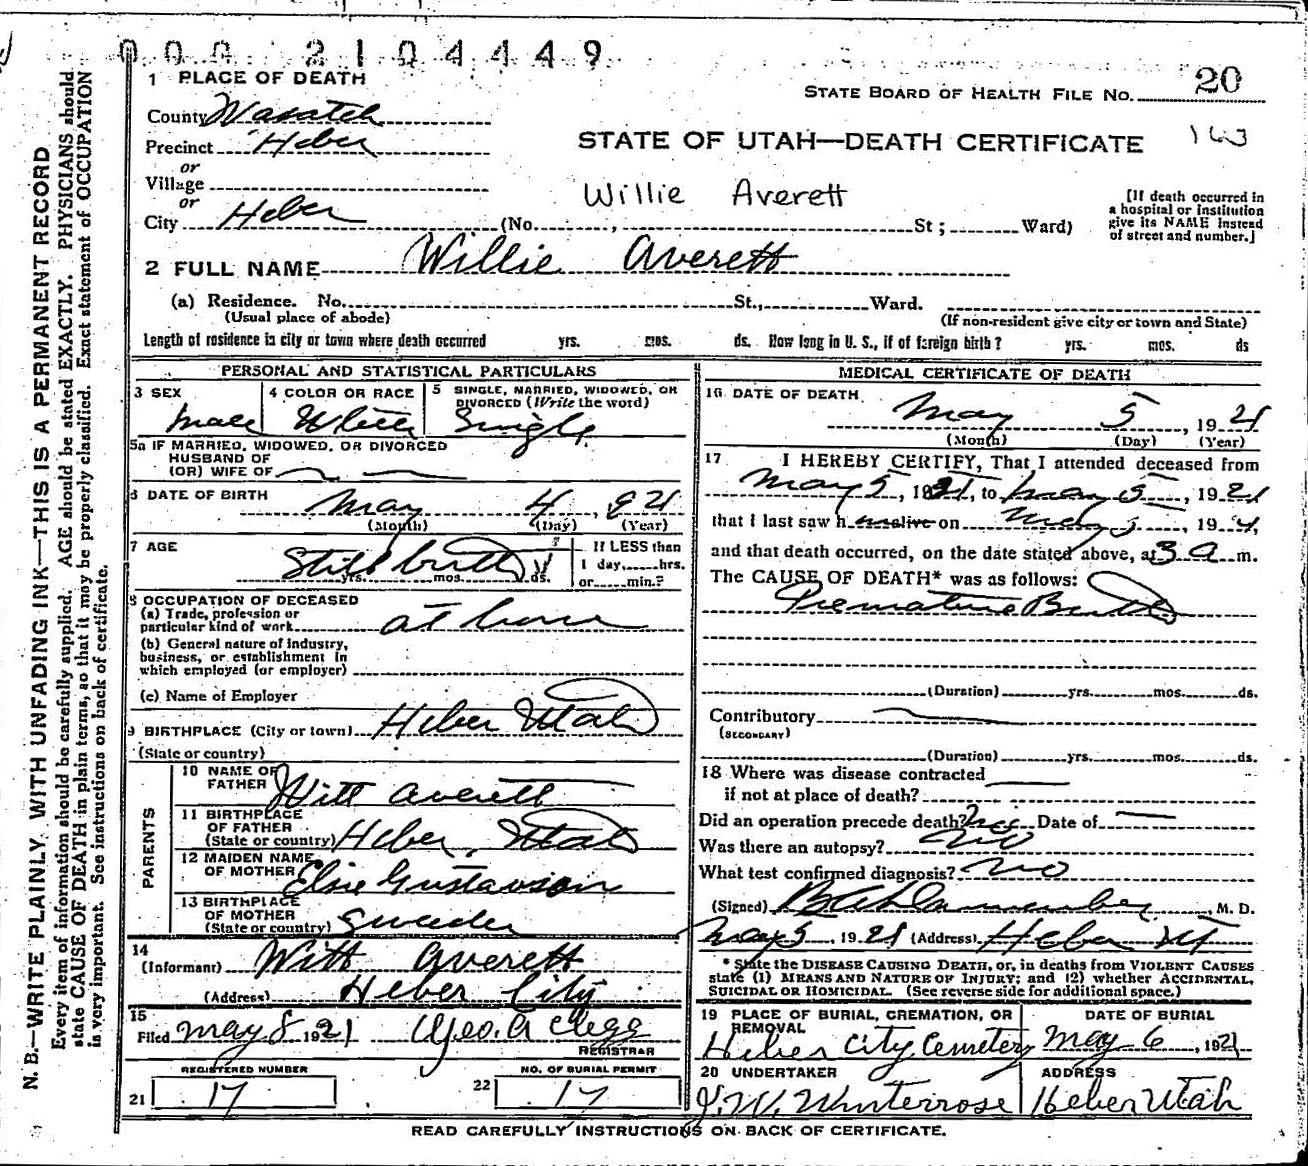 000 2104449
1 PLACE OF DEATH
STATE BOARD OF HEALTH FILE NO. 20
County Wasatch
Precinct Heber
STATE OF UTAH—DEATH CERTIFICATE 163
or
Village
Willie Averett
or
City Heber (No. , St ; Ward)
[If death occurred in a hospital or institution give its NAME instead of street and number.]
2 FULL NAME Willie Averett
(a) Residence. No. St., Ward.
(Usual place of abode) (If non-resident give city or town and State)
Length of residence in city or town where death occurred yrs. mos. ds. How long in U. S., if of foreign birth? yrs. mos. ds
PERSONAL AND STATISTICAL PARTICULARS
3 SEX 4 COLOR OR RACE 5 SINGLE, MARRIED, WIDOWED, OR
DIVORCED (Write the word)
Male White Single
5a IF MARRIED, WIDOWED, OR DIVORCED
HUSBAND OF
(OR) WIFE OF
6 DATE OF BIRTH
May 4, 921
(Month) (Day) (Year)
7 AGE If LESS than
Still birth 1 day, hrs.
yrs. mos. ds. or min.?
8 OCCUPATION OF DECEASED
(a) Trade, profession or
particular kind of work at home
(b) General nature of industry,
business, or establishment in
which employed (or employer)
(c) Name of Employer
9 BIRTHPLACE (City or town) Heber Utah
(State or country)
PARENTS
10 NAME OF
FATHER Witt Averett
11 BIRTHPLACE
OF FATHER
(State or country) Heber, Utah
12 MAIDEN NAME
OF MOTHER Elsie Gustavson
13 BIRTHPLACE
OF MOTHER
(State or country) Sweden
14
(Informant) Witt Averett
(Address) Heber City
15
Filed May 8 1921 Geo. A Clegg
REGISTRAR
REGISTERED NUMBER NO. OF BURIAL PERMIT
21 17 22 17
MEDICAL CERTIFICATE OF DEATH
16 DATE OF DEATH
May 5, 1921
(Month) (Day) (Year)
17 I HEREBY CERTIFY, That I attended deceased from
May 5, 1921, to May 5, 1921
that I last saw h alive on May 5, 192
and that death occurred, on the date stated above, at 3 a m.
The CAUSE OF DEATH* was as follows:
Premature Birth
(Duration) yrs. mos. ds.
Contributory
(SECONDARY)
(Duration) yrs. mos. ds.
18 Where was disease contracted
if not at place of death?
Did an operation precede death? no Date of
Was there an autopsy? No
What test confirmed diagnosis? No
(Signed) M. D.
May 5, 1921 (Address) Heber Ut
* State the DISEASE CAUSING DEATH, or, in deaths from VIOLENT CAUSES
state (1) MEANS AND NATURE OF INJURY; and (2) whether ACCIDENTAL,
SUICIDAL OR HOMICIDAL. (See reverse side for additional space.)
19 PLACE OF BURIAL, CREMATION, OR DATE OF BURIAL
REMOVAL
Heber City Cemetery May 6, 1921
20 UNDERTAKER ADDRESS
J. W. Winterrose Heber Utah
READ CAREFULLY INSTRUCTIONS ON BACK OF CERTIFICATE.
N. B.—WRITE PLAINLY, WITH UNFADING INK—THIS IS A PERMANENT RECORD
Every item of information should be carefully supplied. AGE should be stated EXACTLY. PHYSICIANS should
state CAUSE OF DEATH in plain terms, so that it may be properly classified. Exact statement of OCCUPATION
is very important. See instructions on back of certificate.